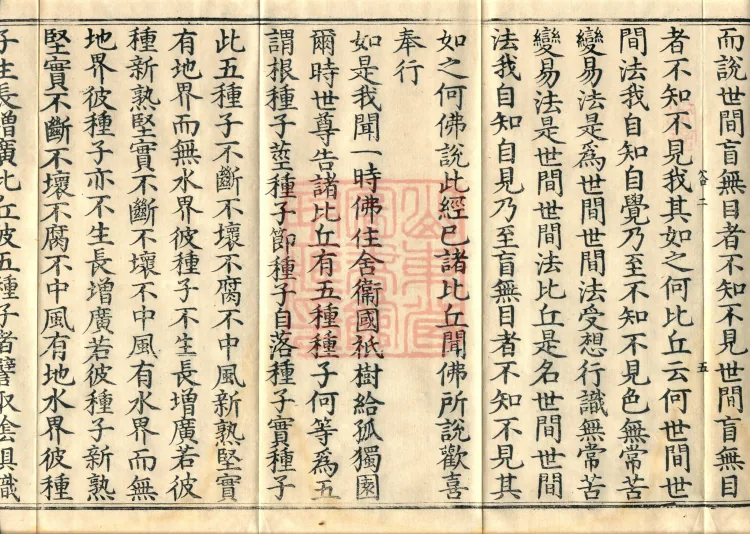 而說世間盲無目者不知不見世間盲無目
二
五
者不知不見我其如之何比丘云何世間世
間法我自知自覺乃至不知不見色無常苦
變易法是爲世間世間法受想行識無常苦
變易法是世間世間法比丘是名世間世間
法我自知自見乃至盲無目者不知不見其
如之何佛說此經已諸比丘聞佛所說歡喜
奉行
如是我聞一時佛住舍衞國祇樹給孤獨園
爾時世尊告諸比丘有五種種子何等爲五
謂根種子莖種子節種子自落種子實種子
此五種子不斷不壞不腐不中風新熟堅實
有地界而無水界彼種子不生長增廣若彼
種新熟堅實不斷不壞不腐不中風有水界而無
地界彼種子亦不生長增廣若彼種子新熟
堅實不斷不壞不腐不中風有地水界彼種
子生長增廣比丘彼五種子者譬取陰俱識